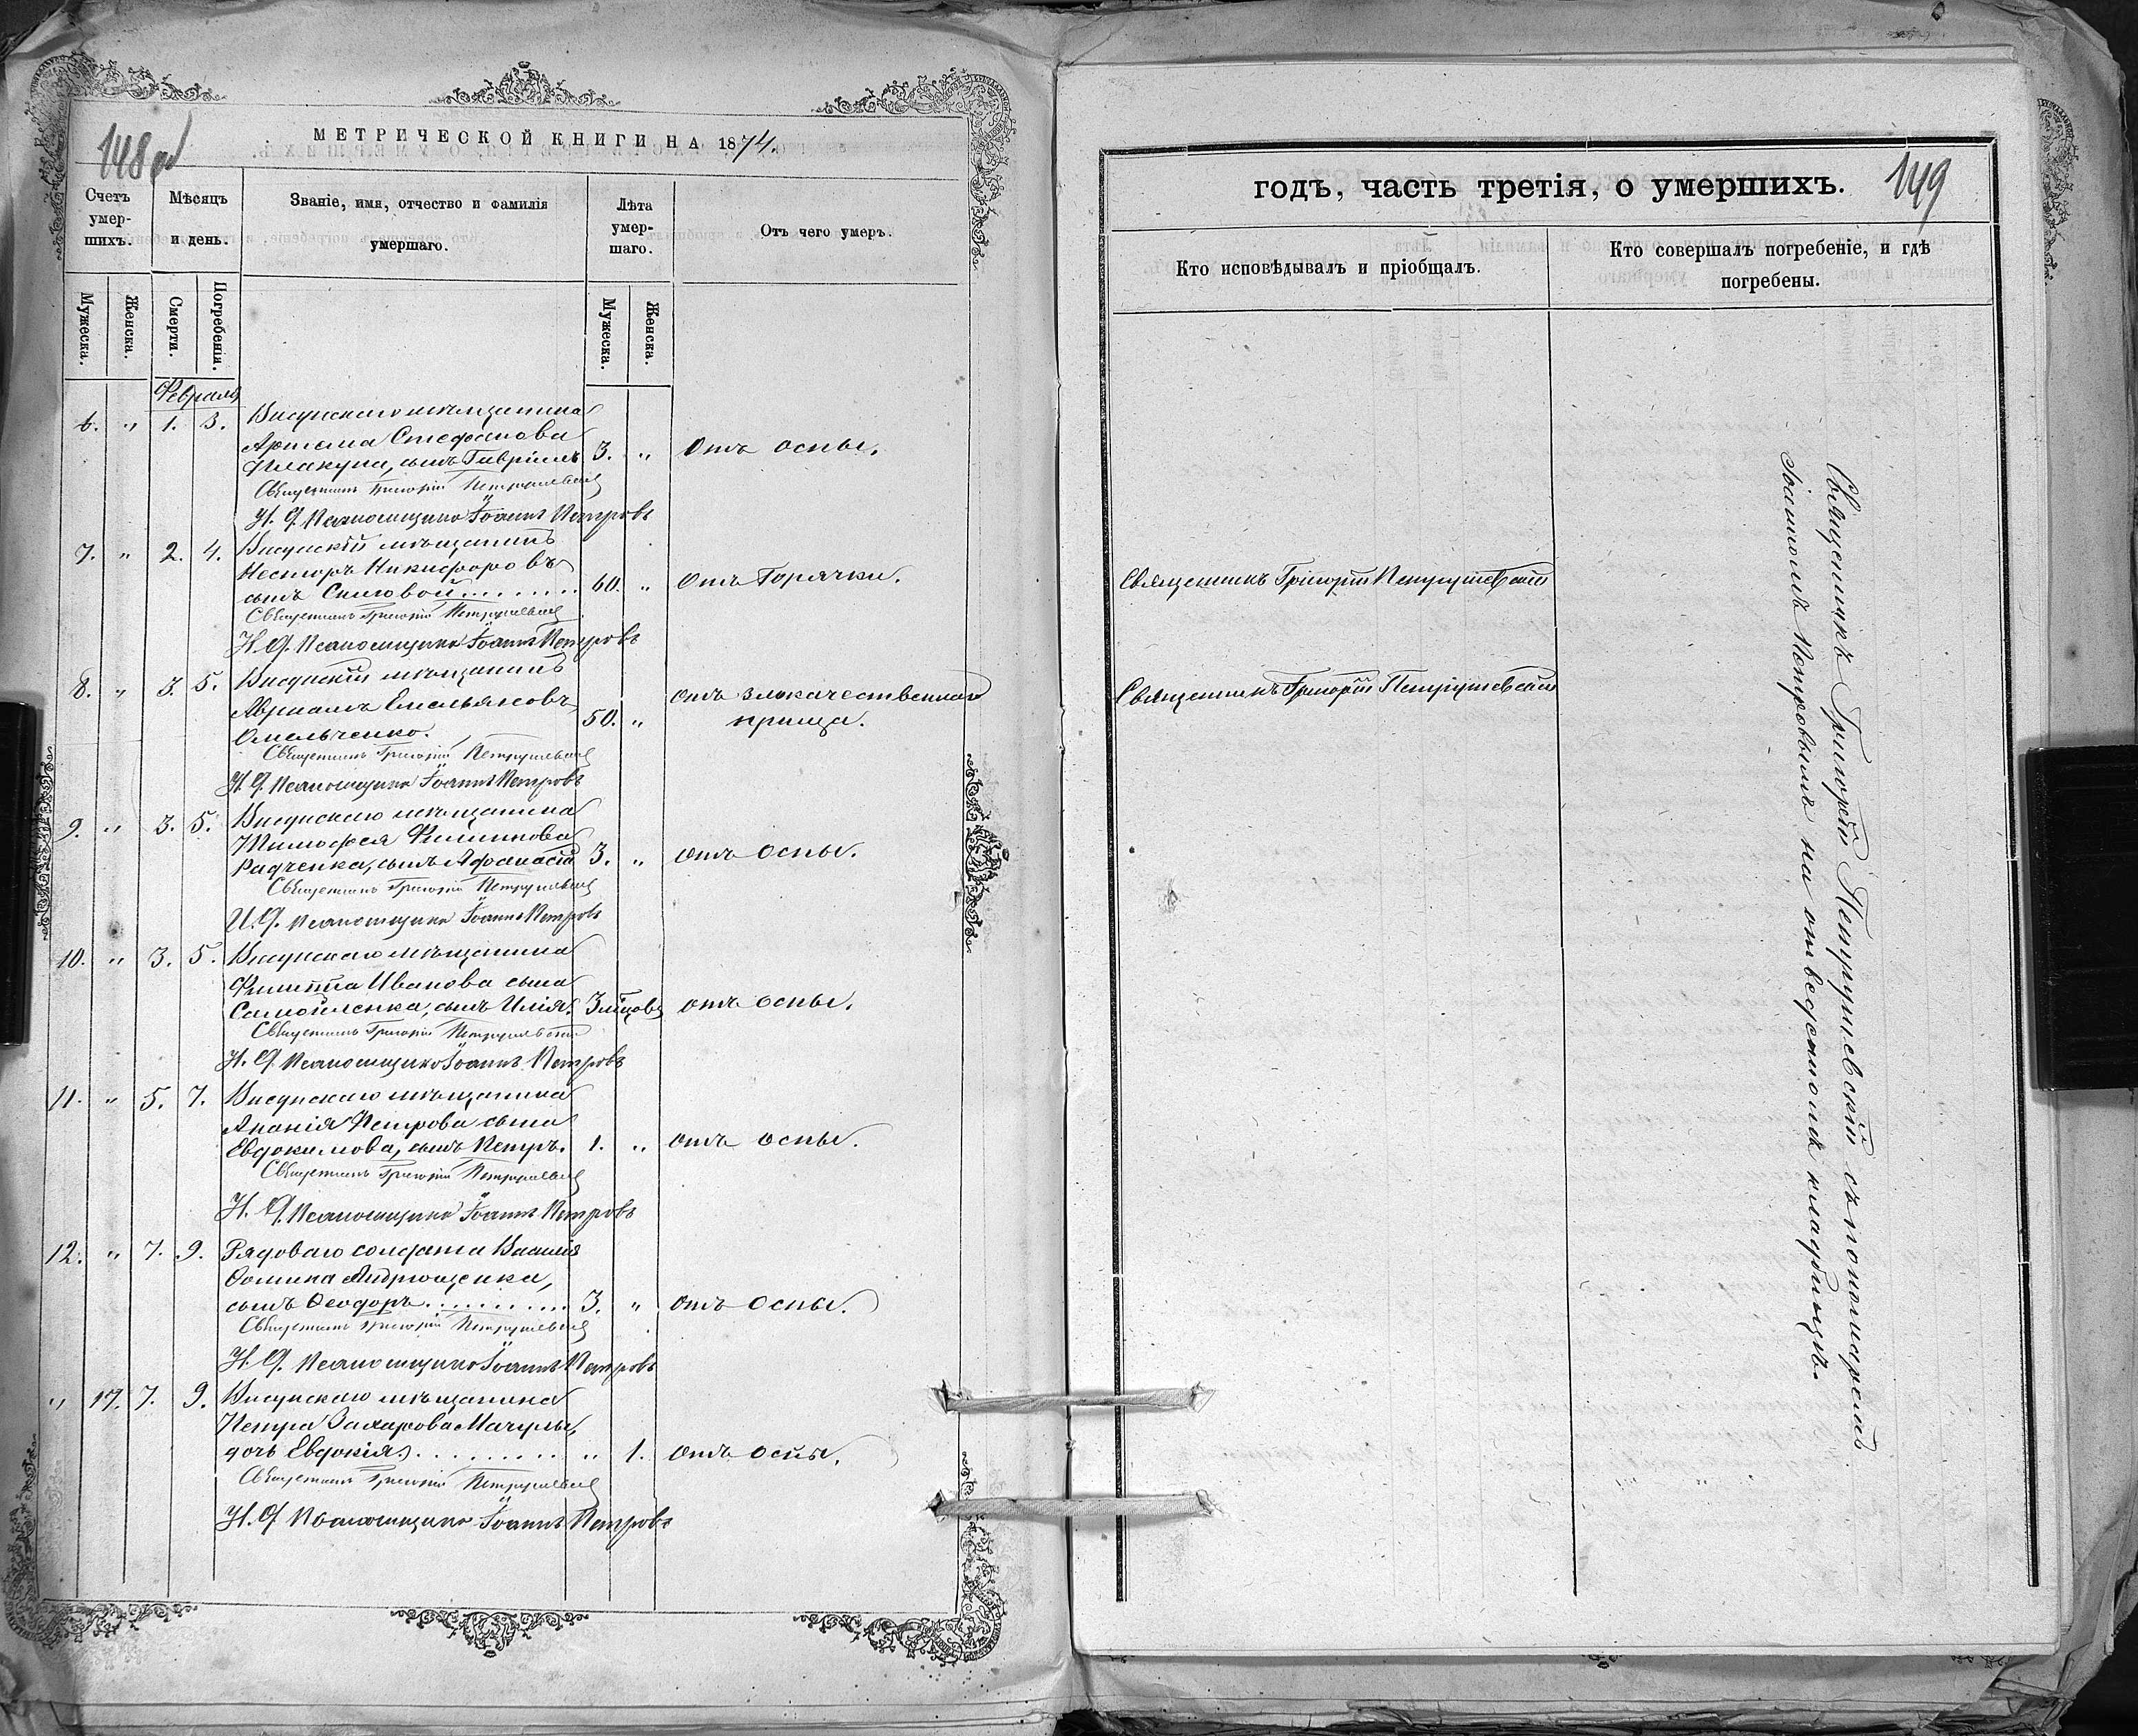 148 об
МЕТРИЧЕСКОЙ КНИГИ НА 1874.
Счетъ умер-шихъ.
Мѣсяцъ и день.
Званіе, имя, отчество и фамилія умершаго.
Лѣта умер-шаго.
Отъ чего умеръ.
Мужеска.
Женска.
Смерти.
Погребенія.
Мужеска.
Женска.
Февраля
6. „ 1. 3. Висунскаго мѣщанина
Артема Стефанова
сынъ Гавріилъ 3. „ Отъ оспы.
Священникъ Григорій Петрушевскій
И. Д. Псаломщика Іоаннъ Петровъ
7. „ 2. 4. Висунскій мѣщанинъ
Несторъ Никифоровъ
сынъ Сниговой 60. „ Отъ Горячки.
Священникъ Григорій Петрушевскій
И. Д. Псаломщика Іоаннъ Петровъ
8. „ 3. 5. Висунскій мѣщанинъ
Авраамъ Емельяновъ
Омельченко. 50. „ отъ злокачественнаго
прища.
Священникъ Григорій Петрушевскій
И. Д. Псаломщика Іоаннъ Петровъ
9. „ 3. 5. Висунскаго мѣщанина
Тимофея Филипова
Радченка, сынъ Афанасій 3. „ отъ оспы.
Священникъ Григорій Петрушевскій
И. Д. Псаломщика Іоаннъ Петровъ
10. „ 3. 5. Висунскаго мѣщанина
Филиппа Иванова сына
Самойленка, сынъ Илія. 3 отъ оспы.
Священникъ Григорій Петрушевскій
И. Д. Псаломщика Іоаннъ Петровъ
11. „ 5. 7. Висунскаго мѣщанина
Ананія Петрова сына
Евдокимова, сынъ Петръ. 1. „ отъ оспы.
Священникъ Григорій Петрушевскій
И. Д. Псаломщика Іоаннъ Петровъ
12. „ 7. 9. Рядоваго солдата Василія
Ѳомина Андрющенка,
сынъ Ѳеодоръ 3. „ отъ оспы.
Священникъ Григорій Петрушевскій
И. Д. Псаломщика Іоаннъ Петровъ
„ 17. 7. 9. Висунскаго мѣщанина
Петра Захарова Мачулы,
дочь Евдокія „ 1. отъ оспы.
Священникъ Григорій Петрушевскій
И. Д. Псаломщика Іоаннъ Петровъ
годъ, часть третія, о умершихъ.
149
Кто исповѣдывалъ и пріобщалъ.
Кто совершалъ погребеніе, и гдѣ погребены.
Священникъ Григорій Петрушевскій
Священникъ Григорій Петрушевскій
Священникъ Григорій Петрушевскій съ пономаремъ
Іоанномъ Петровымъ на отведенномъ кладбищѣ.